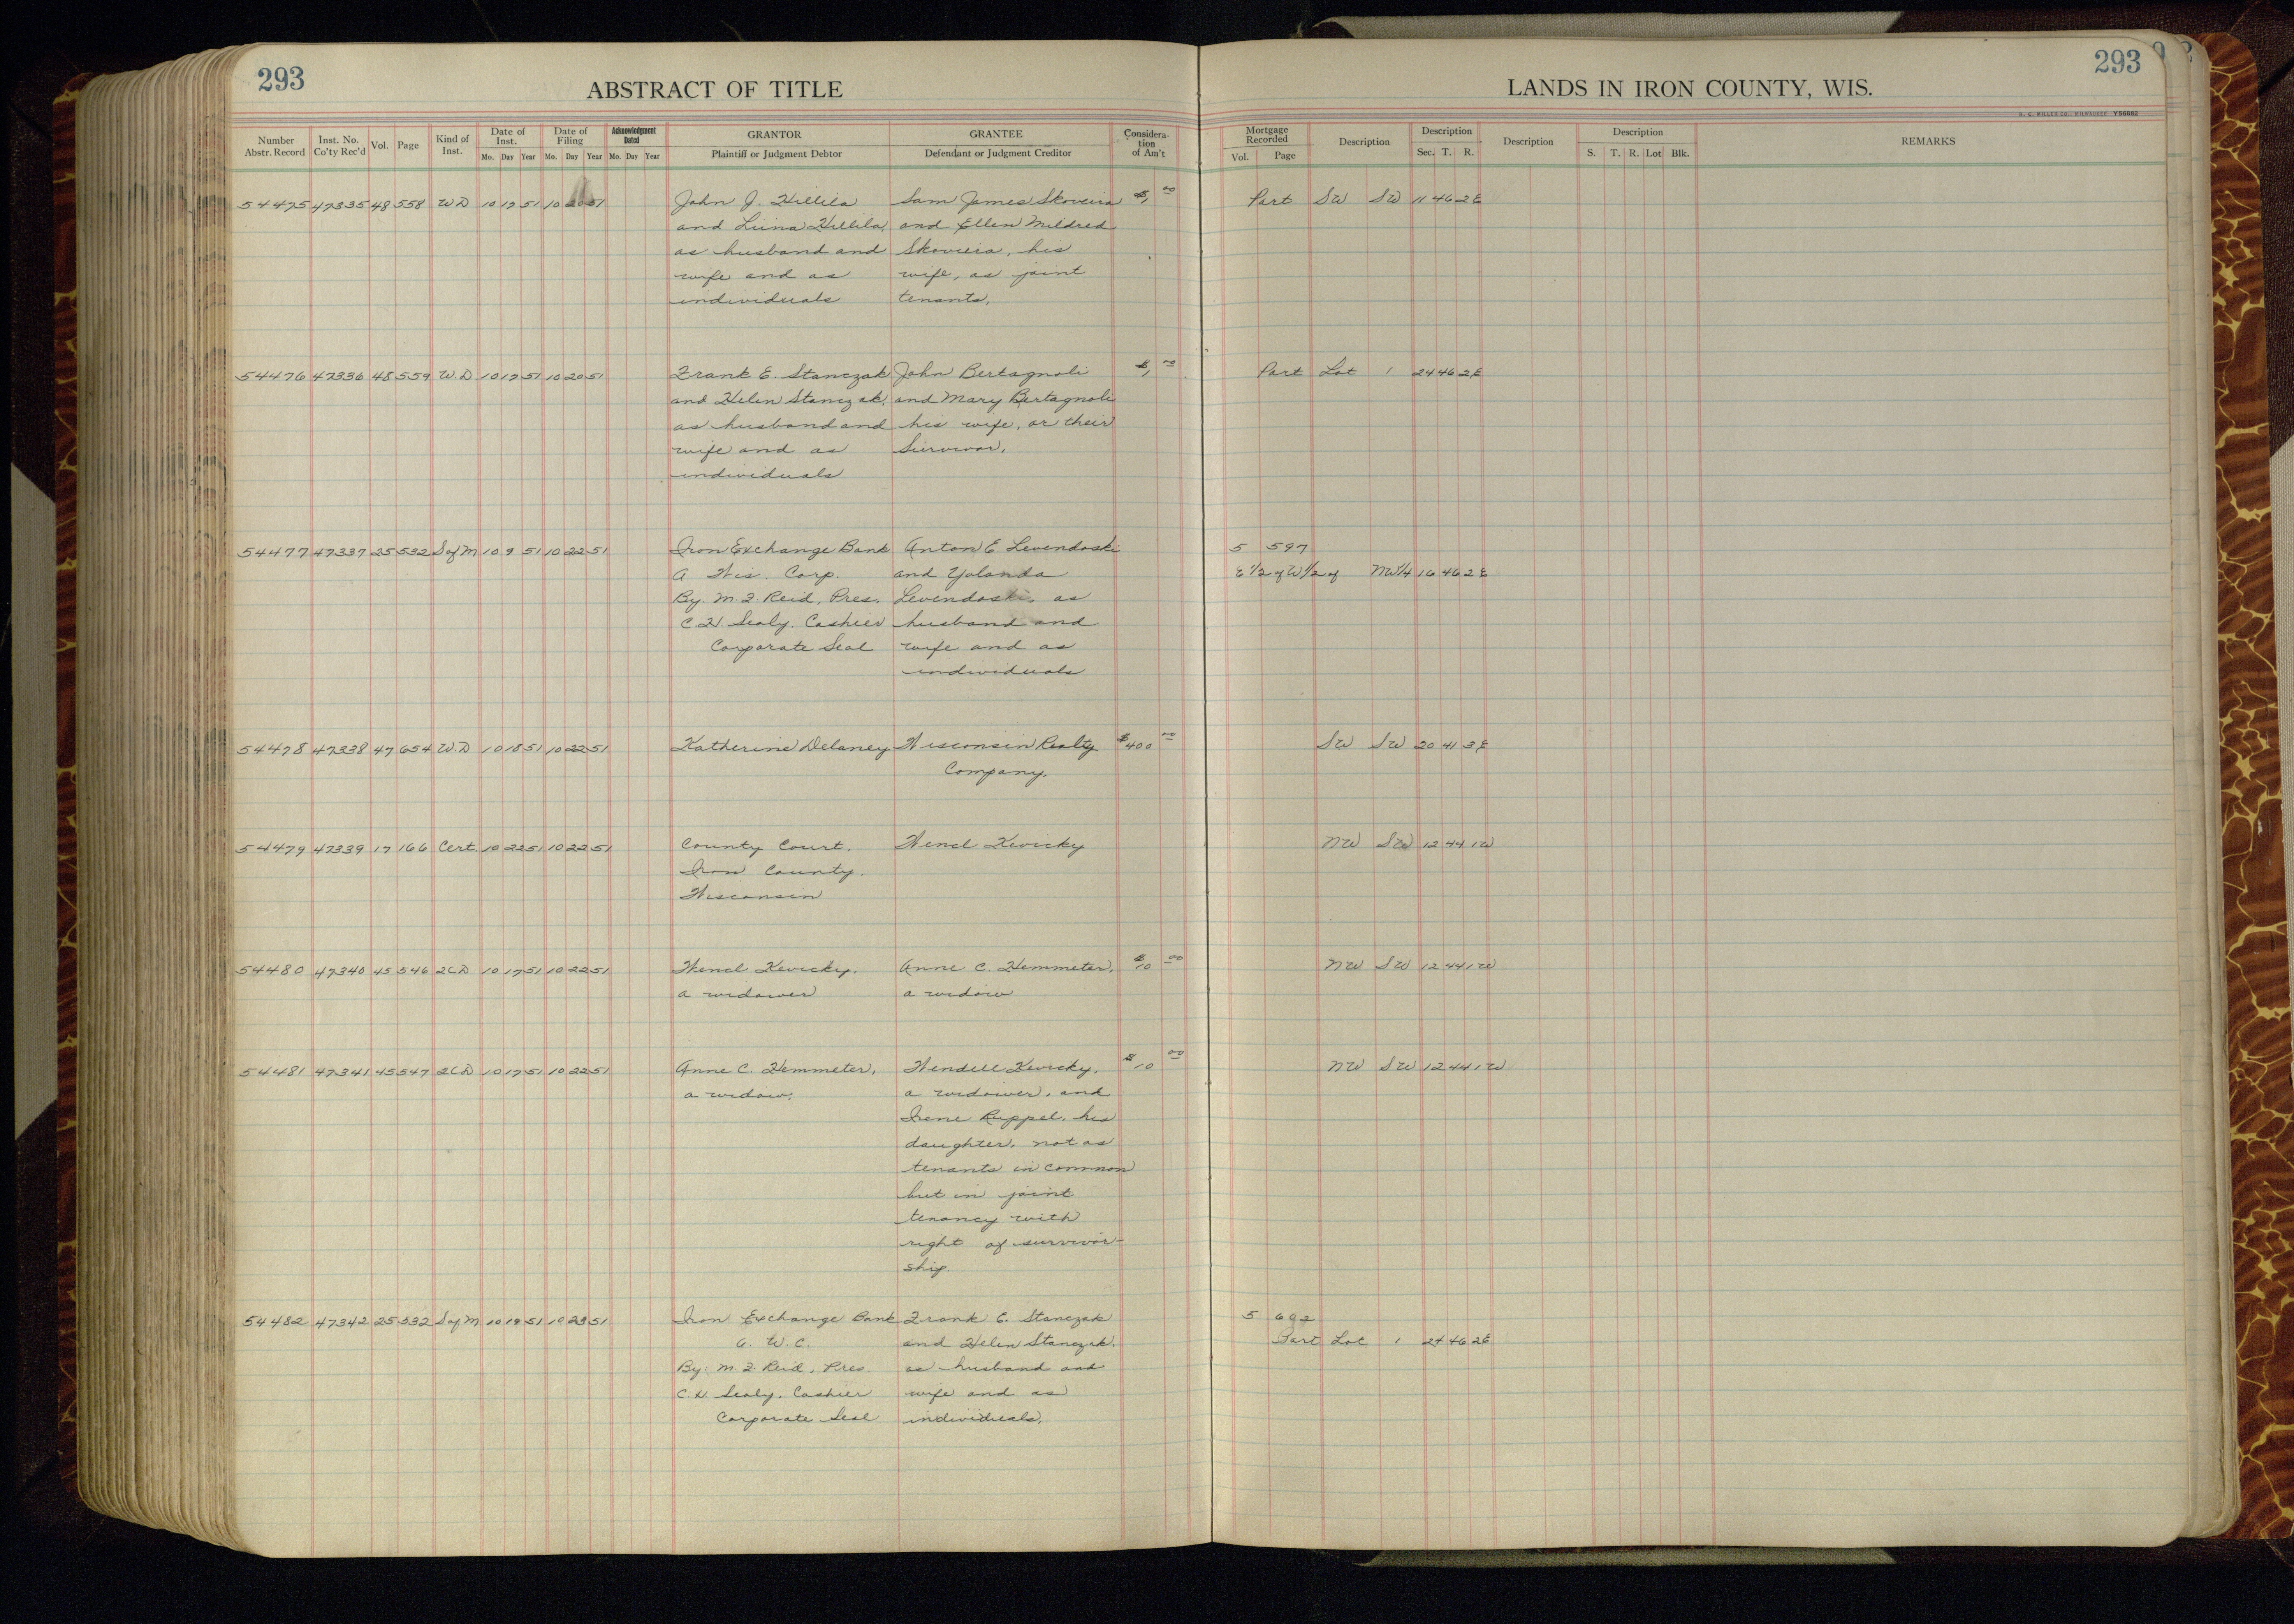 293
ABSTRACT OF TITLE
LANDS IN IRON COUNTY, WIS.
293
H. C. MILLER CO., MILWAUKEE Y56082
Number Abstr. Record
Inst. No. Co'ty Rec'd
Vol.
Page
Kind of Inst.
Date of Inst.
Mo. Day Year
Date of Filing
Mo. Day Year
Acknowledgment Dated
Mo. Day Year
GRANTOR
Plaintiff or Judgment Debtor
GRANTEE
Defendant or Judgment Creditor
Considera-tion of Am't
Mortgage Recorded
Vol. Page
Description
Description
Sec. T. R.
Description
Description
S. T. R. Lot Blk.
REMARKS
54475 47335 48 558 WD 10 17 51 10 20 51 John J. Hillila Sam James Skoviera $1,00 Part SW SW 11 46 2E
and Liina Hillila, and Ellen Mildred
as husband and Skoviera, his
wife and as wife, as joint
individuals tenants.
54476 47336 48 559 W.D 10 17 51 10 20 51 Frank E. Stanczak John Bertagnoli $1,00 Part Lot 1 24 46 2E
and Helen Stanczak, and Mary Bertagnoli
as husband and his wife, or their
wife and as Survivor.
individuals
54477 47337 25 532 S of M 10 9 51 10 22 51 Iron Exchange Bank Anton E. Levendoski 5 597
A Wis. Corp. and Yolanda E 1/2 of W 1/2 of NW 1/4 16 46 2E
By M.F. Reid, Pres. Levendoski, as
C.H. Sealy, Cashier husband and
Corporate Seal wife and as
individuals
54478 47338 47 654 W.D 10 18 51 10 22 51 Katherine Delaney Wisconsin Realty $400 00 SW SW 20 41 3E
Company.
54479 47339 17 166 Cert. 10 22 51 10 22 51 County Court, Wencl Kevicky NW SW 12 44 1W
Iron County.
Wisconsin
54480 47340 45 546 2CD 10 17 51 10 22 51 Wencl Kevicky, Anne C. Hemmeter, $10 00 NW SW 12 44 1W
a widower a widow
54481 47341 45 547 2CD 10 17 51 10 22 51 Anne C. Hemmeter, Wendell Kevicky, $10 00 NW SW 12 44 1W
a widow. a widower, and
Irene Ruppel, his
daughter, not as
tenants in common
but in joint
tenancy with
right of survivor-
ship.
54482 47342 25 532 S of M 10 19 51 10 23 51 Iron Exchange Bank Frank E. Stanczak 5 602
a. W.C. and Helen Stanczak, Part Lot 1 24 46 2E
By M.F. Reid, Pres. as husband and
C.H. Sealy, Cashier wife and as
Corporate Seal individuals.